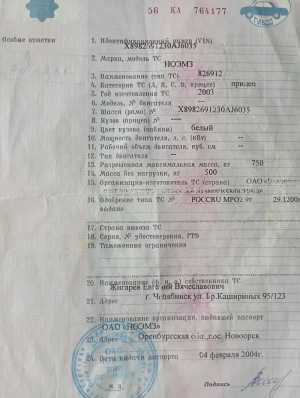 56 КА 764177
Особые отметки
1. Идентификационный номер (VIN)
X8982691230AJ6035
2. Марка, модель ТС
НОЭМЗ
3. Наименование (тип ТС) 826912
4. Категория ТС (A, B, C, D, прицеп) прицеп
5. Год изготовления ТС 2003
6. Модель, № двигателя ---
7. Шасси (рама) № X8982691230AJ6035
8. Кузов (прицеп) № ---
9. Цвет кузова (кабины) белый
10. Мощность двигателя, л. с. (кВт) --
11. Рабочий объем двигателя, куб. см --
12. Тип двигателя --
13. Разрешенная максимальная масса, кг 750
14. Масса без нагрузки, кг 500
15. Организация-изготовитель ТС (страна) ОАО
16. Одобрение типа ТС № РОССRU МР02 от 29.1200
выдано
17. Страна вывоза ТС
18. Серия, № удостоверения, ГТД
19. Таможенные ограничения
20. Наименование (ф. и. о.) собственника ТС
Жигарев Евгений Вячеславович
г. Челябинск ул. Бр.Кашириных 95/123
21. Адрес
22. Наименование организации, выдавшей паспорт
ОАО «НОЭМЗ»
Оренбургская обл.,пос. Новоорск
23. Адрес
24. Дата выдачи паспорта 04 февраля 2004г.
М. П. Подпись